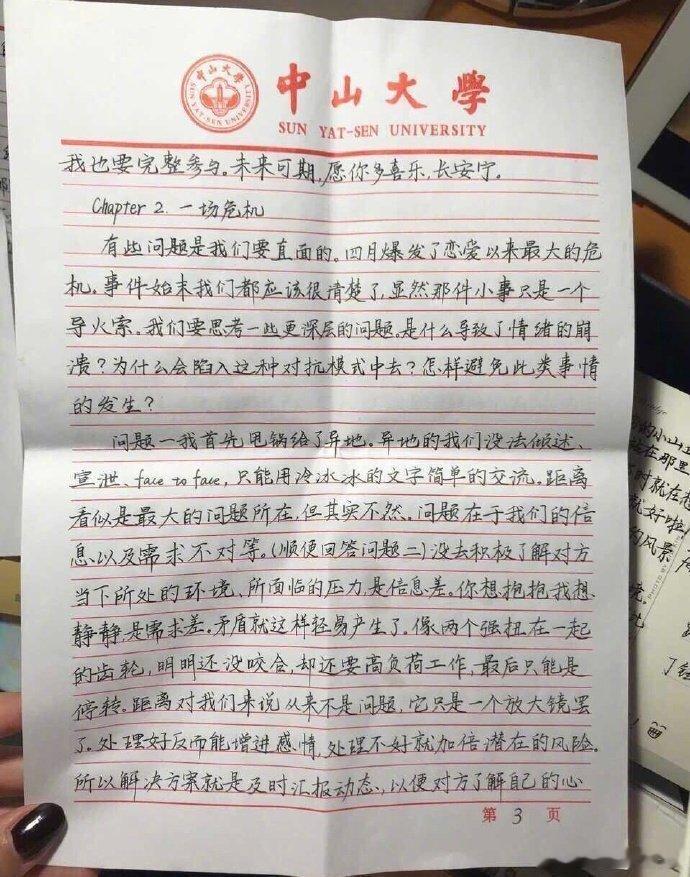 中山大學
SUN YAT-SEN UNIVERSITY
中山大學
SUN YAT-SEN UNIVERSITY
我也要完整参与。未来可期,愿你多喜乐,长安宁。
Chapter 2. 一场危机
有些问题是我们要直面的。四月爆发了恋爱以来最大的危
机,事件始末我们都应该很清楚了,显然那件小事只是一个
导火索。我们要思考一些更深层的问题。是什么导致了情绪的崩
溃?为什么会陷入这种对抗模式中去?怎样避免此类事情
的发生?
问题一我首先甩锅给了异地。异地的我们没法倾述、
宣泄、face to face,只能用冷冰冰的文字简单的交流。距离
看似是最大的问题所在,但其实不然。问题在于我们的信
息以及需求不对等。(顺便回答问题二)没去积极了解对方
当下所处的环境、所面临的压力,是信息差。你想抱抱我想
静静,是需求差。矛盾就这样轻易产生了。像两个强扭在一起
的齿轮,明明还没咬合,却还要高负荷工作,最后只能是
停转。距离对我们来说从来不是问题,它只是一个放大镜罢
了。处理好反而能增进感情,处理不好就加倍潜在的风险。
所以解决方案就是及时汇报动态,以便对方了解自己的心
第 3 页
的小山
在那里
时就在
就好啦
的风景